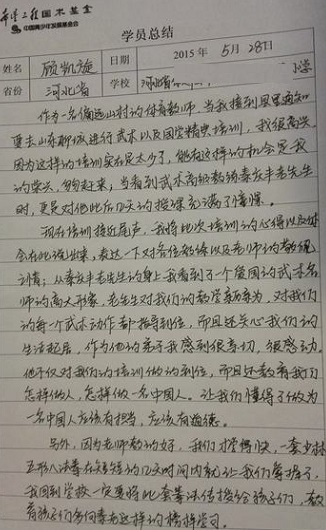 希望工程国术基金
中国青少年发展基金会
学员总结
姓名 顾凯旋 日期 2015年 5月 28日
省份 河北省 学校 河北省 小学
作为一名偏远山村的体育教师，当我接到
要去山东聊城进行武术以及国学精典培训，我很高兴，
因为这样的培训实在是太少了，能有这样的机会是我
的荣兴，匆匆赶来，当看到武术高级教练秦庆丰老先生
时，更是对他此后几天的授课充满了憧憬。
现在培训接近尾声，我将此次培训的心得以及体
会在此说出来，表达一下对各位教练以及老师的教练
之情；从秦庆丰老先生的身上我看到了一个爱国的武术名
师的高大形象，老先生对我们的教学 ，对我们
的每一个武术动作都指导到位，而且还关心我们的
生活起居，作为他的弟子我感到很亲切，很感动。
他不仅对我们的培训做的到位，而且还教育我们
怎样做人，怎样做一名中国人。让我们懂得了做为
一名中国人应该有担当，应该有道德。
另外，因为老师教的好，我们才学得快，一套少林
五形八法拳在短短的几天时间内就让我们掌握了，
我回到学校一定要将此套拳法传授给孩子们，教
育孩子们多向秦老这样的榜样学习。